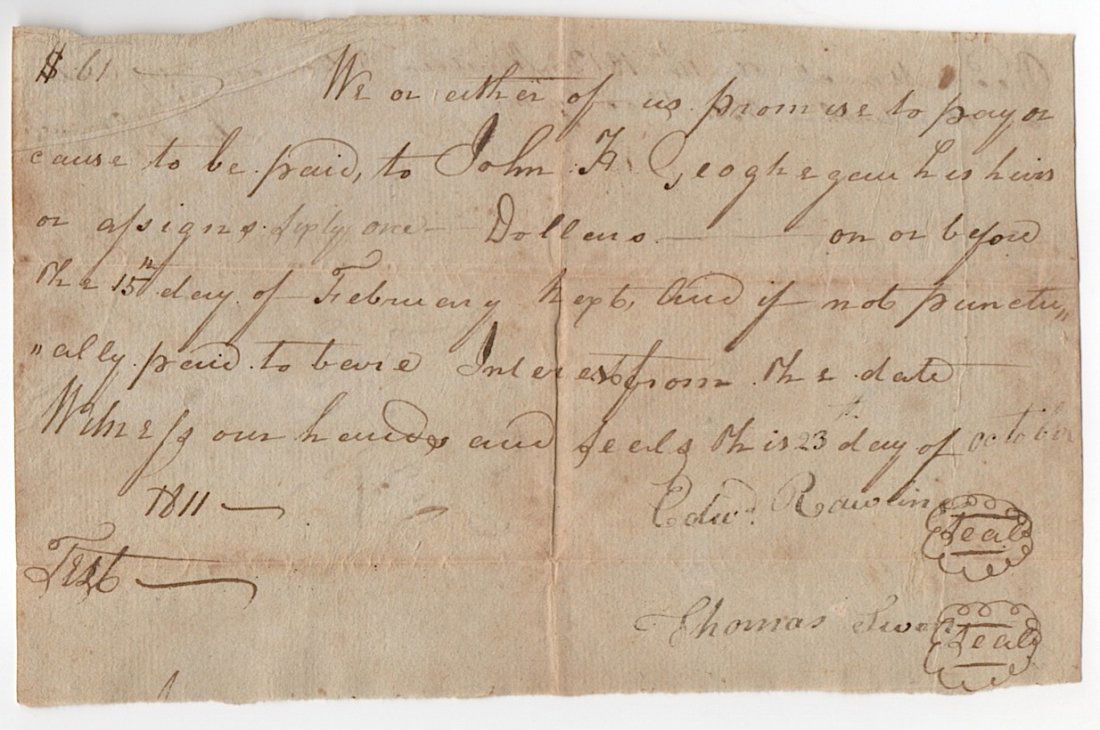 $ 61
We or either of us promise to pay or
cause to be paid, to John H Geoghegan his heirs
or assigns Sixty one Dollars on or before
the 15th day of February next, And if not punctu„
„ally paid to beare Interest from the date
Witness our hands and seals this 23th day of October
1811
Edwd. Rawlins Seal
Test
Thomas Swan Seal